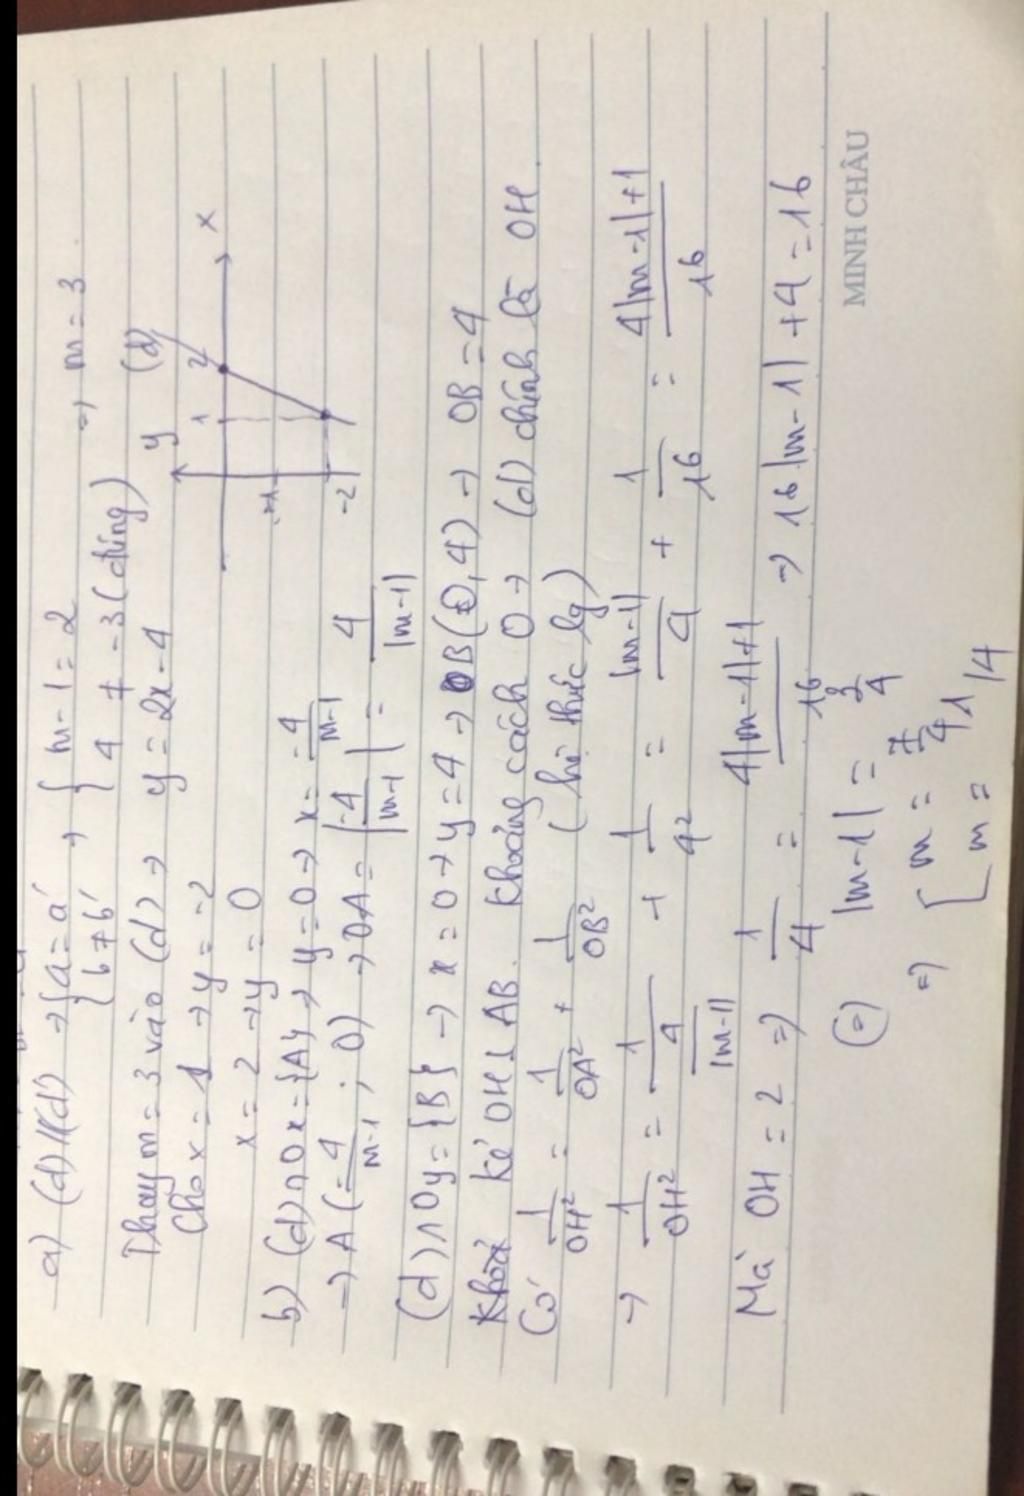 a) (d)//(d') → { a = a' → { m - 1 = 2 → m = 3
b ≠ b' 4 ≠ -3 (đúng)
Thay m = 3 vào (d) → y = 2x - 4
Cho x = 1 → y = -2
x = 2 → y = 0
y (d)
1 2 x
-1
-2
b) (d) ∩ Ox = {A} → y = 0 → x = -4/(m-1)
→ A (-4/(m-1) ; 0) → OA = |-4/(m-1)| = 4/|m-1|
(d) ∩ Oy = {B} → x = 0 → y = 4 → B(0, 4) → OB = 4
Kẻ OH ⊥ AB. Khoảng cách O → (d) chính là OH.
Có 1/OH² = 1/OA² + 1/OB² (hệ thức lg)
→ 1/OH² = 1/(4/|m-1|) + 1/4² = |m-1|/4 + 1/16 = (4|m-1|+1)/16
Mà OH = 2 => 1/4 = (4|m-1|+1)/16 → 16|m-1| + 4 = 16
(=) |m-1| = 3/4
=> [ m = 7/4
m = 1/4
MINH CHÂU